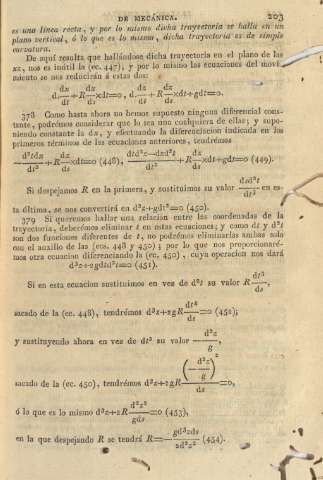 DE MECÁNICA. 203
es una línea recta, y por lo mismo dicha trayectoria se halla en un
plano vertical, ó lo que es lo mismo, dicha trayectoria es de simple
curvatura.
De aquí resulta que hallándose dicha trayectoria en el plano de las
xz, nos es inútil la (ec. 447), y por lo mismo las ecuaciones del movi-
miento se nos reducirán á estas dos:
d.dx/dt+R dx/ds×dt=0, d.dz/dt+R dz/ds×dt+gdt=0.
378 Como hasta ahora no hemos supuesto ninguna diferencial cons-
tante, podrémos considerar que lo sea una cualquiera de ellas; y supo-
niendo constante la dx, y efectuando la diferenciacion indicada en los
primeros términos de las ecuaciones anteriores, tendrémos
-d²tdx/dt²+R dx/ds×dt=0 (448), dtd²z-dzd²t/dt²+R dz/ds×dt+gdt=0 (449).
Si despejamos R en la primera, y sustituimos su valor dsd²t/dt³ en es-
ta última, se nos convertirá en d²z+gdt²=0 (450).
379 Si queremos hallar una relacion entre las coordenadas de la
trayectoria, deberémos eliminar t en estas ecuaciones; y como dt y d²t
son dos funciones diferentes de t, no podrémos eliminarlas ambas solo
con el auxilio de las (ecs. 448 y 450); por lo que nos proporcionaré-
mos otra ecuacion diferenciando la (ec. 450), cuya operacion nos dará
d³z+2gdtd²t=0 (451).
Si en esta ecuacion sustituimos en vez de d²t su valor R dt³/ds,
sacado de la (ec. 448), tendrémos d³z+2gR dt⁴/ds=0 (452);
y sustituyendo ahora en vez de dt² su valor -d²z/g,
sacado de la (ec. 450), tendrémos d³z+2gR (-d²z/g)²/ds=0,
ó lo que es lo mismo d³z+2R d²z²/gds=0 (453),
en la que despejando R se tendrá R=-gd³zds/2d²z² (454).